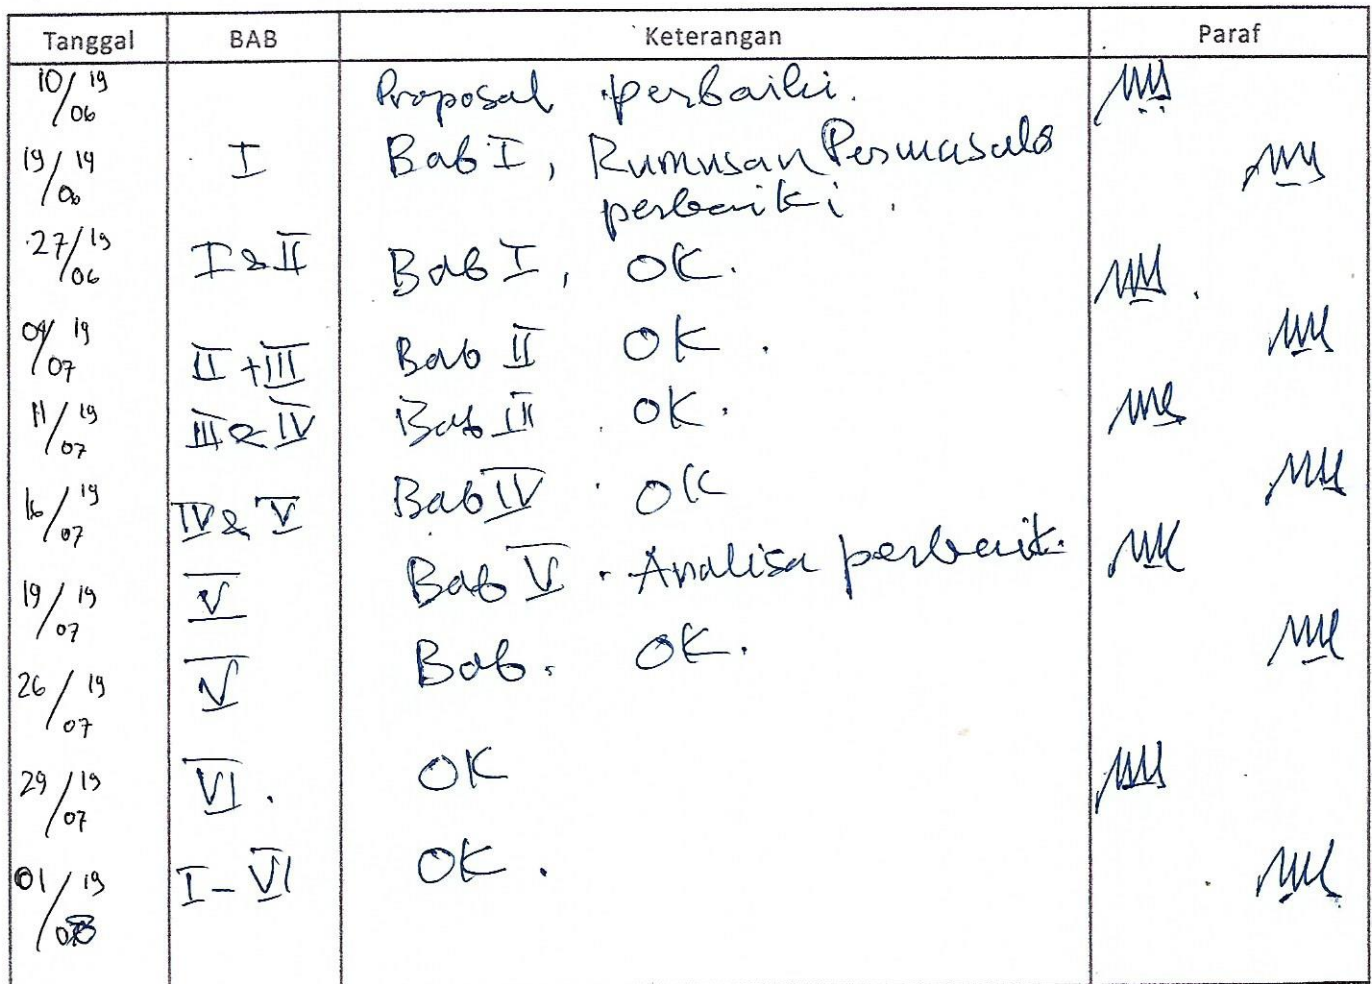 Tanggal BAB Keterangan Paraf
10/19 06 Proposal perbaiki.
19/19 06 I Bab I, Rumusan Permasala
perbaiki.
27/19 06 I & II Bab I, OK.
04/19 07 II + III Bab II OK.
11/19 07 III & IV Bab III OK.
16/19 07 IV & V Bab IV OK
19/19 07 V Bab V. Analisa perbaik.
26/19 07 V Bab. OK.
29/19 07 VI. OK
01/19 I - VI OK.